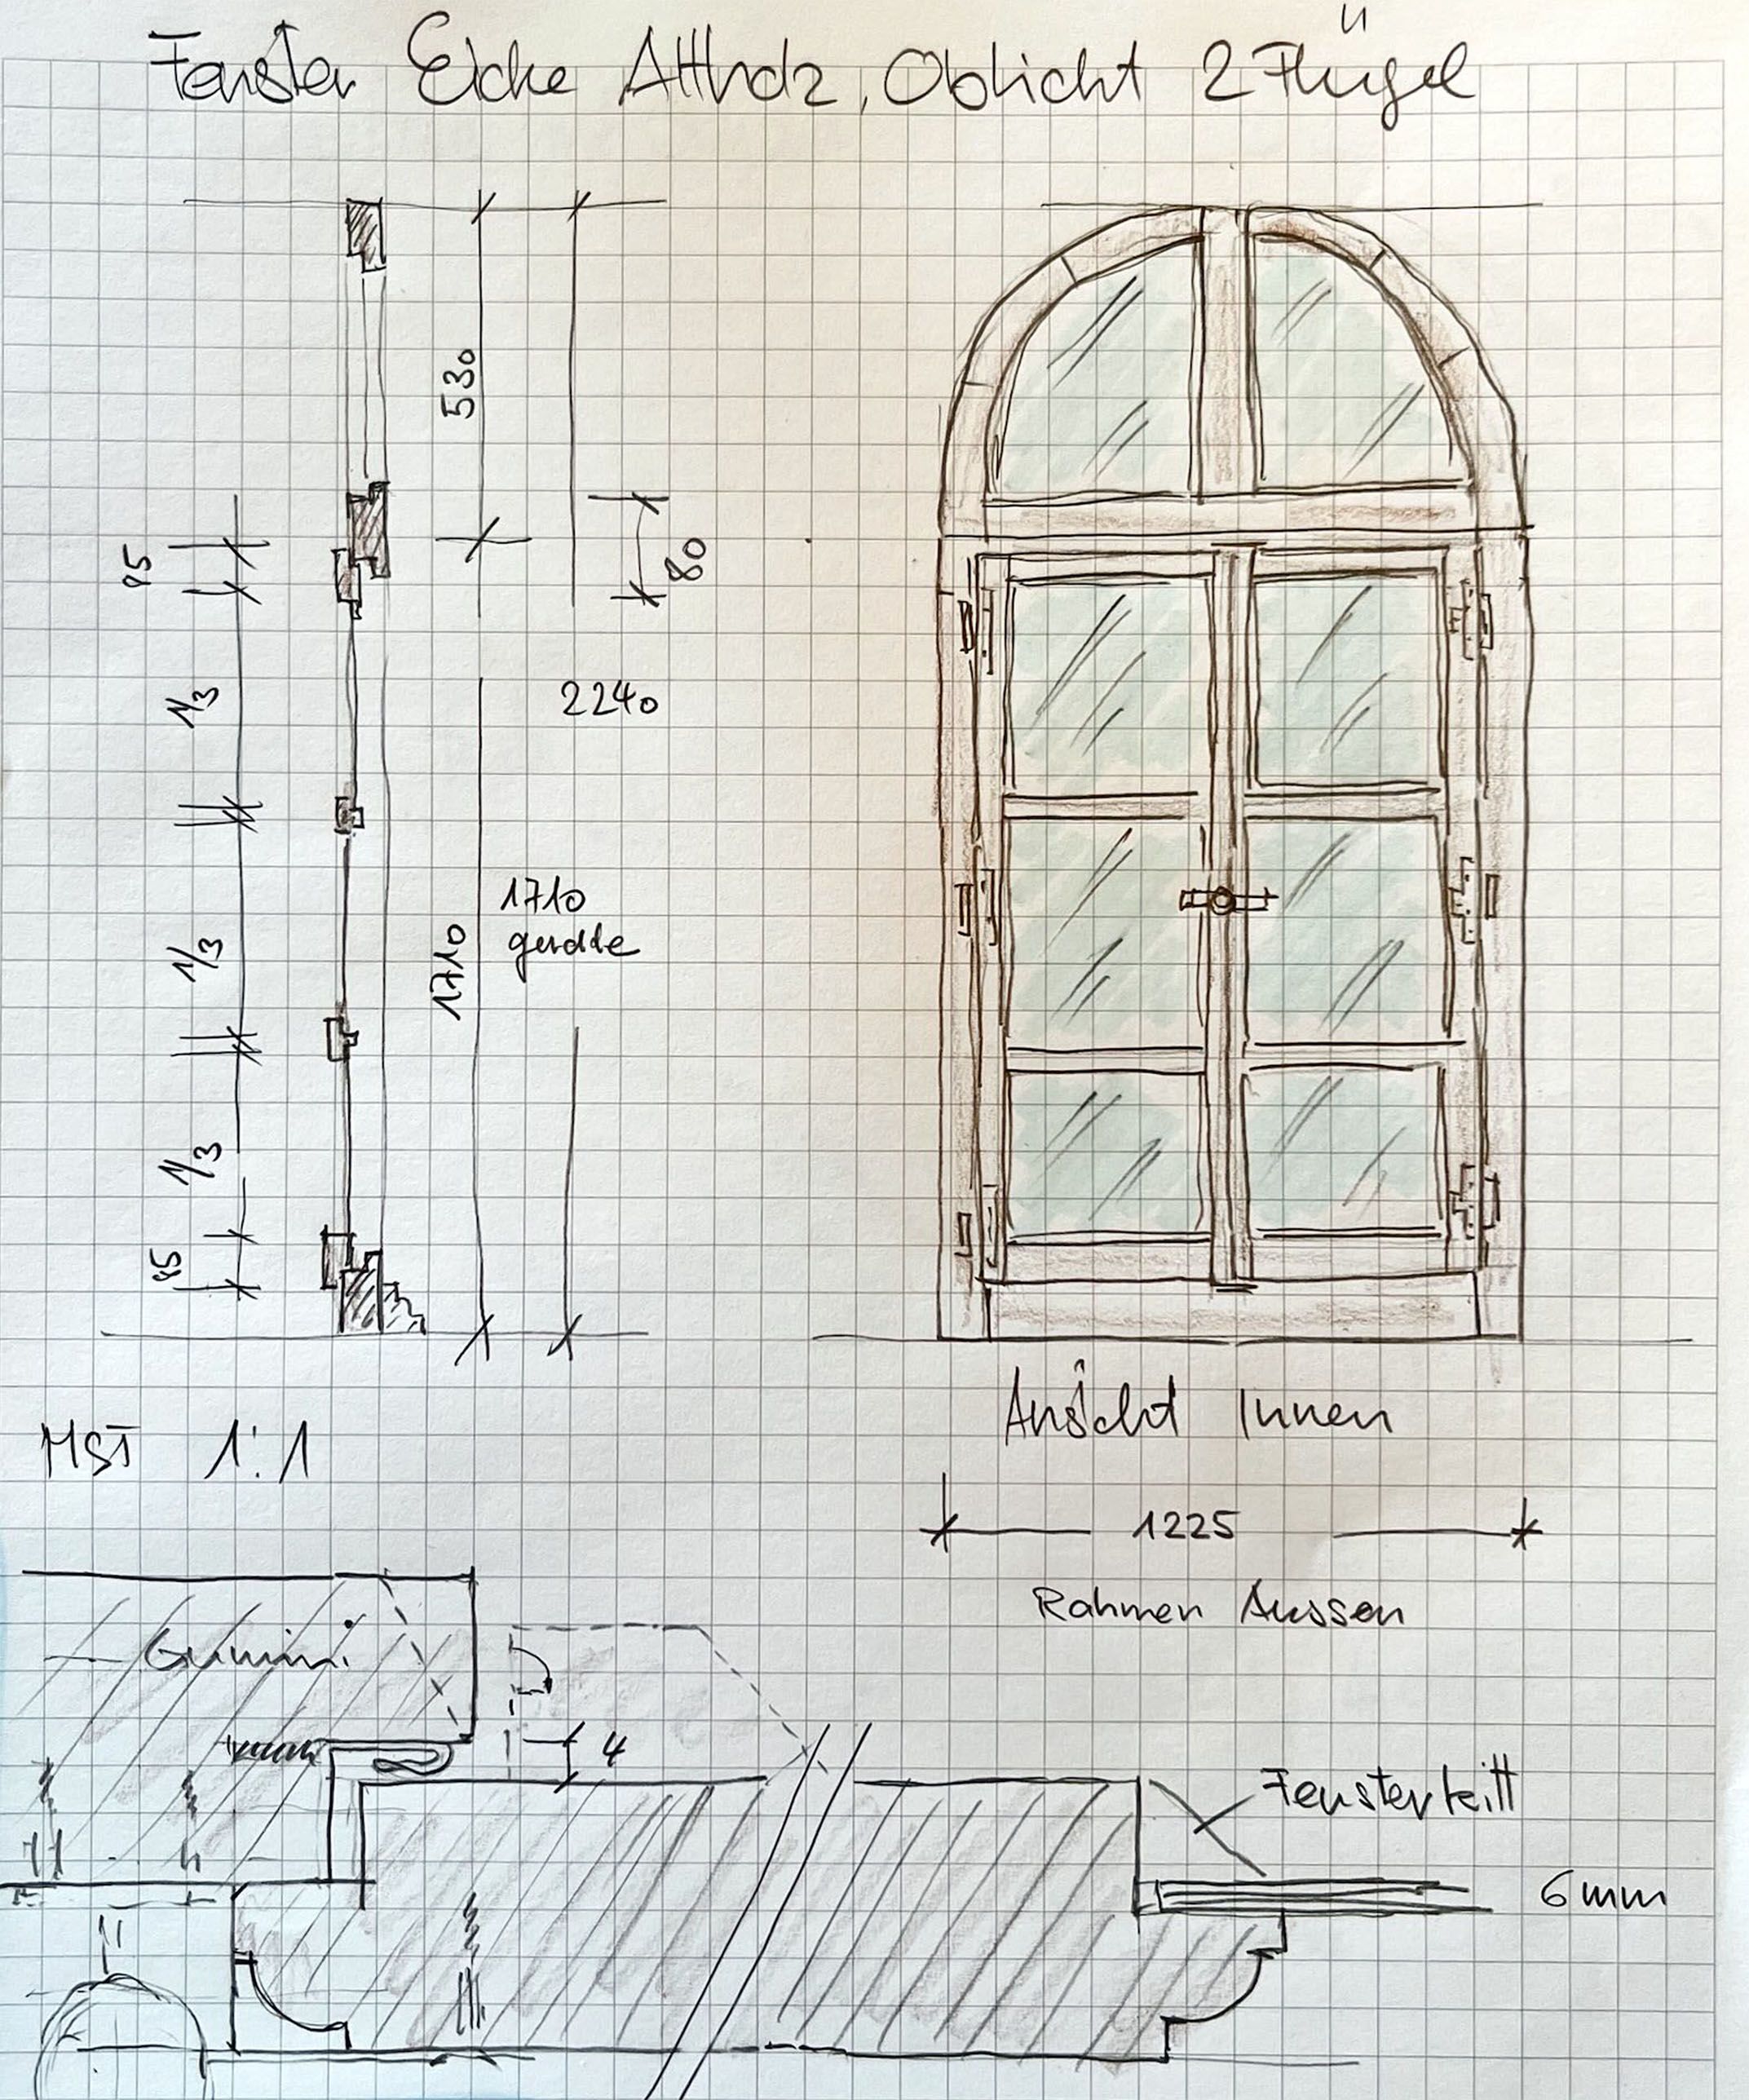 Fenster Eiche Altholz, Oblicht 2 Flügel
530
80
85
2240
1/3
1710
gerade
1710
1/3
1/3
85
Ansicht Innen
MST 1:1
1225
Rahmen Aussen
Gummi
4
Fensterkitt
6mm